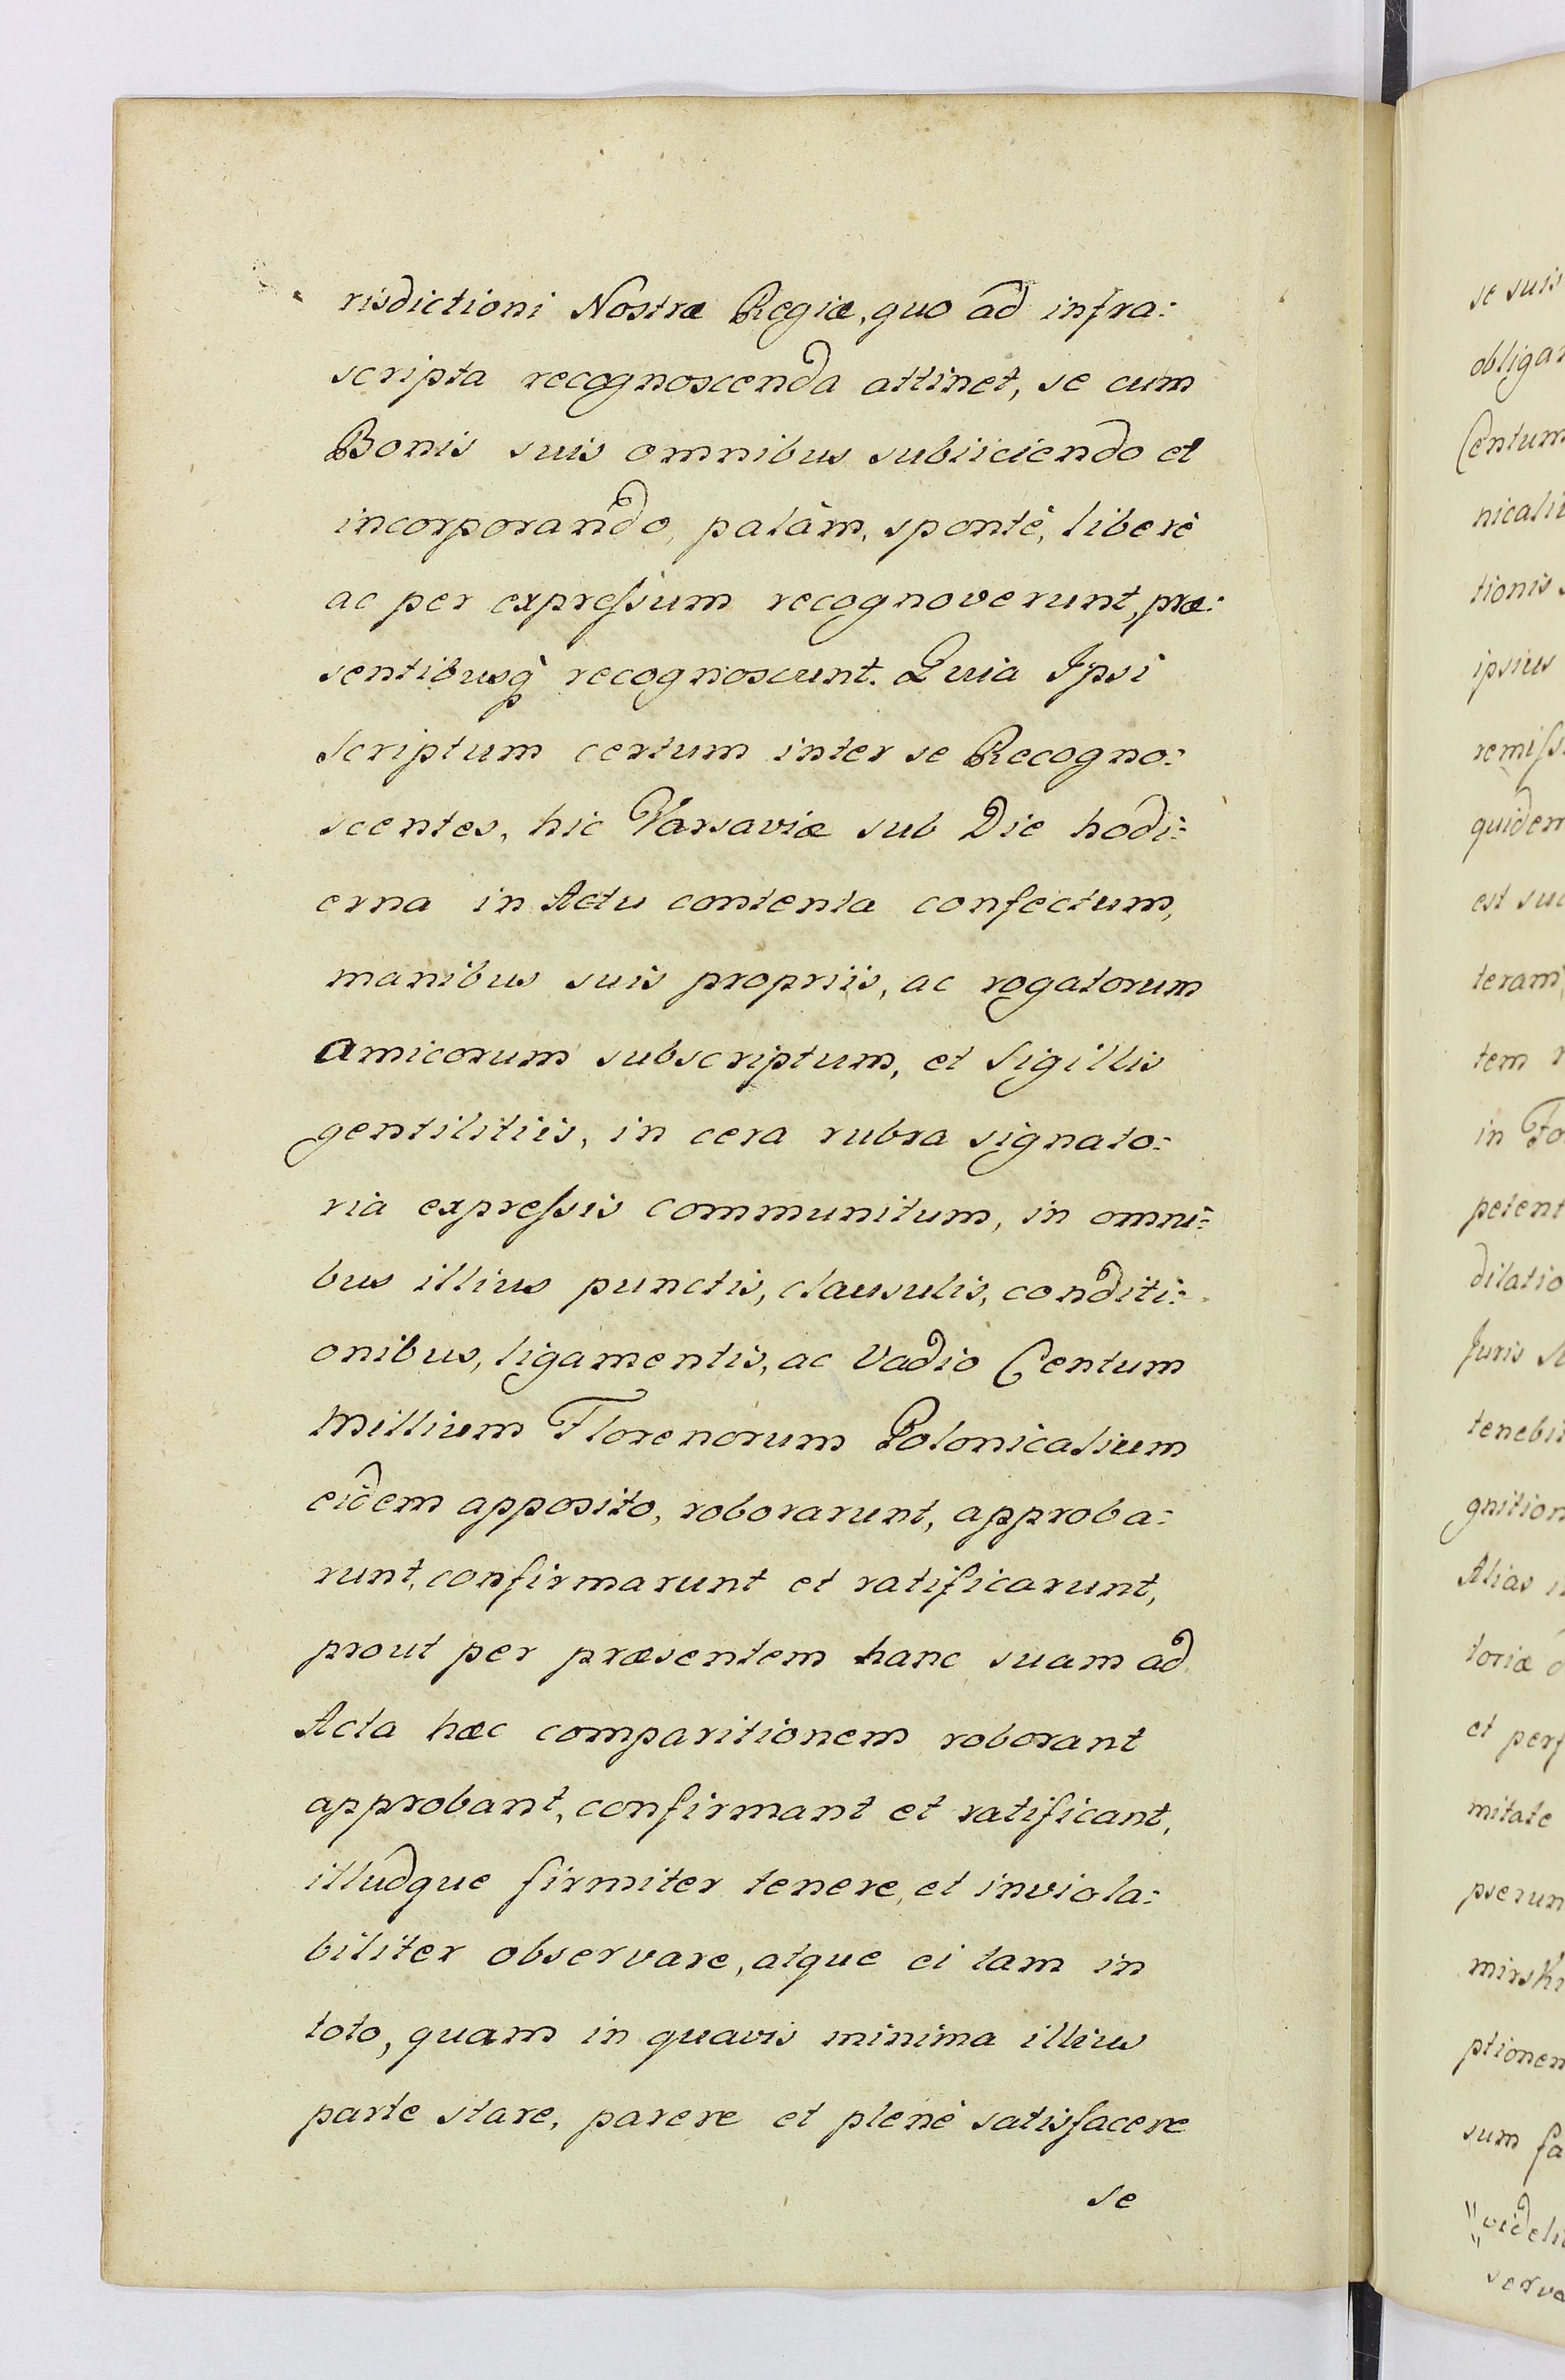 risdictioni Nostræ Regiæ, quo ad infra:
scripta recognoscenda attinet, se cum
Bonis suis omnibus subiiciendo et
incorporando, palàm, spontè, liberè
ac per expreſsum recognoverunt, præ:
sentibusq̀ recognoscunt. Quia Ipsi
Scriptum certum inter se Recogno:
scentes, hic Varsaviæ sub Die hodi:
erna in Actu contenta confectum,
manibus suis propriis, ac rogatorum
Amicorum subscriptum, et Sigillis
gentilitiis, in cera rubra signato:
ria expreſsis communitum, in omni:
bus illius punctis, clausulis, conditi:
onibus, ligamentis, ac Vadio Centum
Millium Florenorum Polonicalium
eidem apposito, roborarunt, approba:
runt, confirmarunt et ratificarunt,
prout per præsentem hanc suam ad
Acta hæc comparitionem roborant
approbant, confirmant et ratificant,
illudque firmiter tenere, et inviola:
biliter observare, atque ei tam in
toto, quam in quavis minima illius
parte stare, parere et plenè satisfacere
se
se suis
obligar
Centum
nicaliu
tionis
ipsius
remiſs
quidem
est
teram
tem
in Fo
petent
dilatio
Juris
tenebi
gnition
Alias
toriæ
et perf
mitate
pserun
mirski
ptionem
sum fa
"videli
"serva